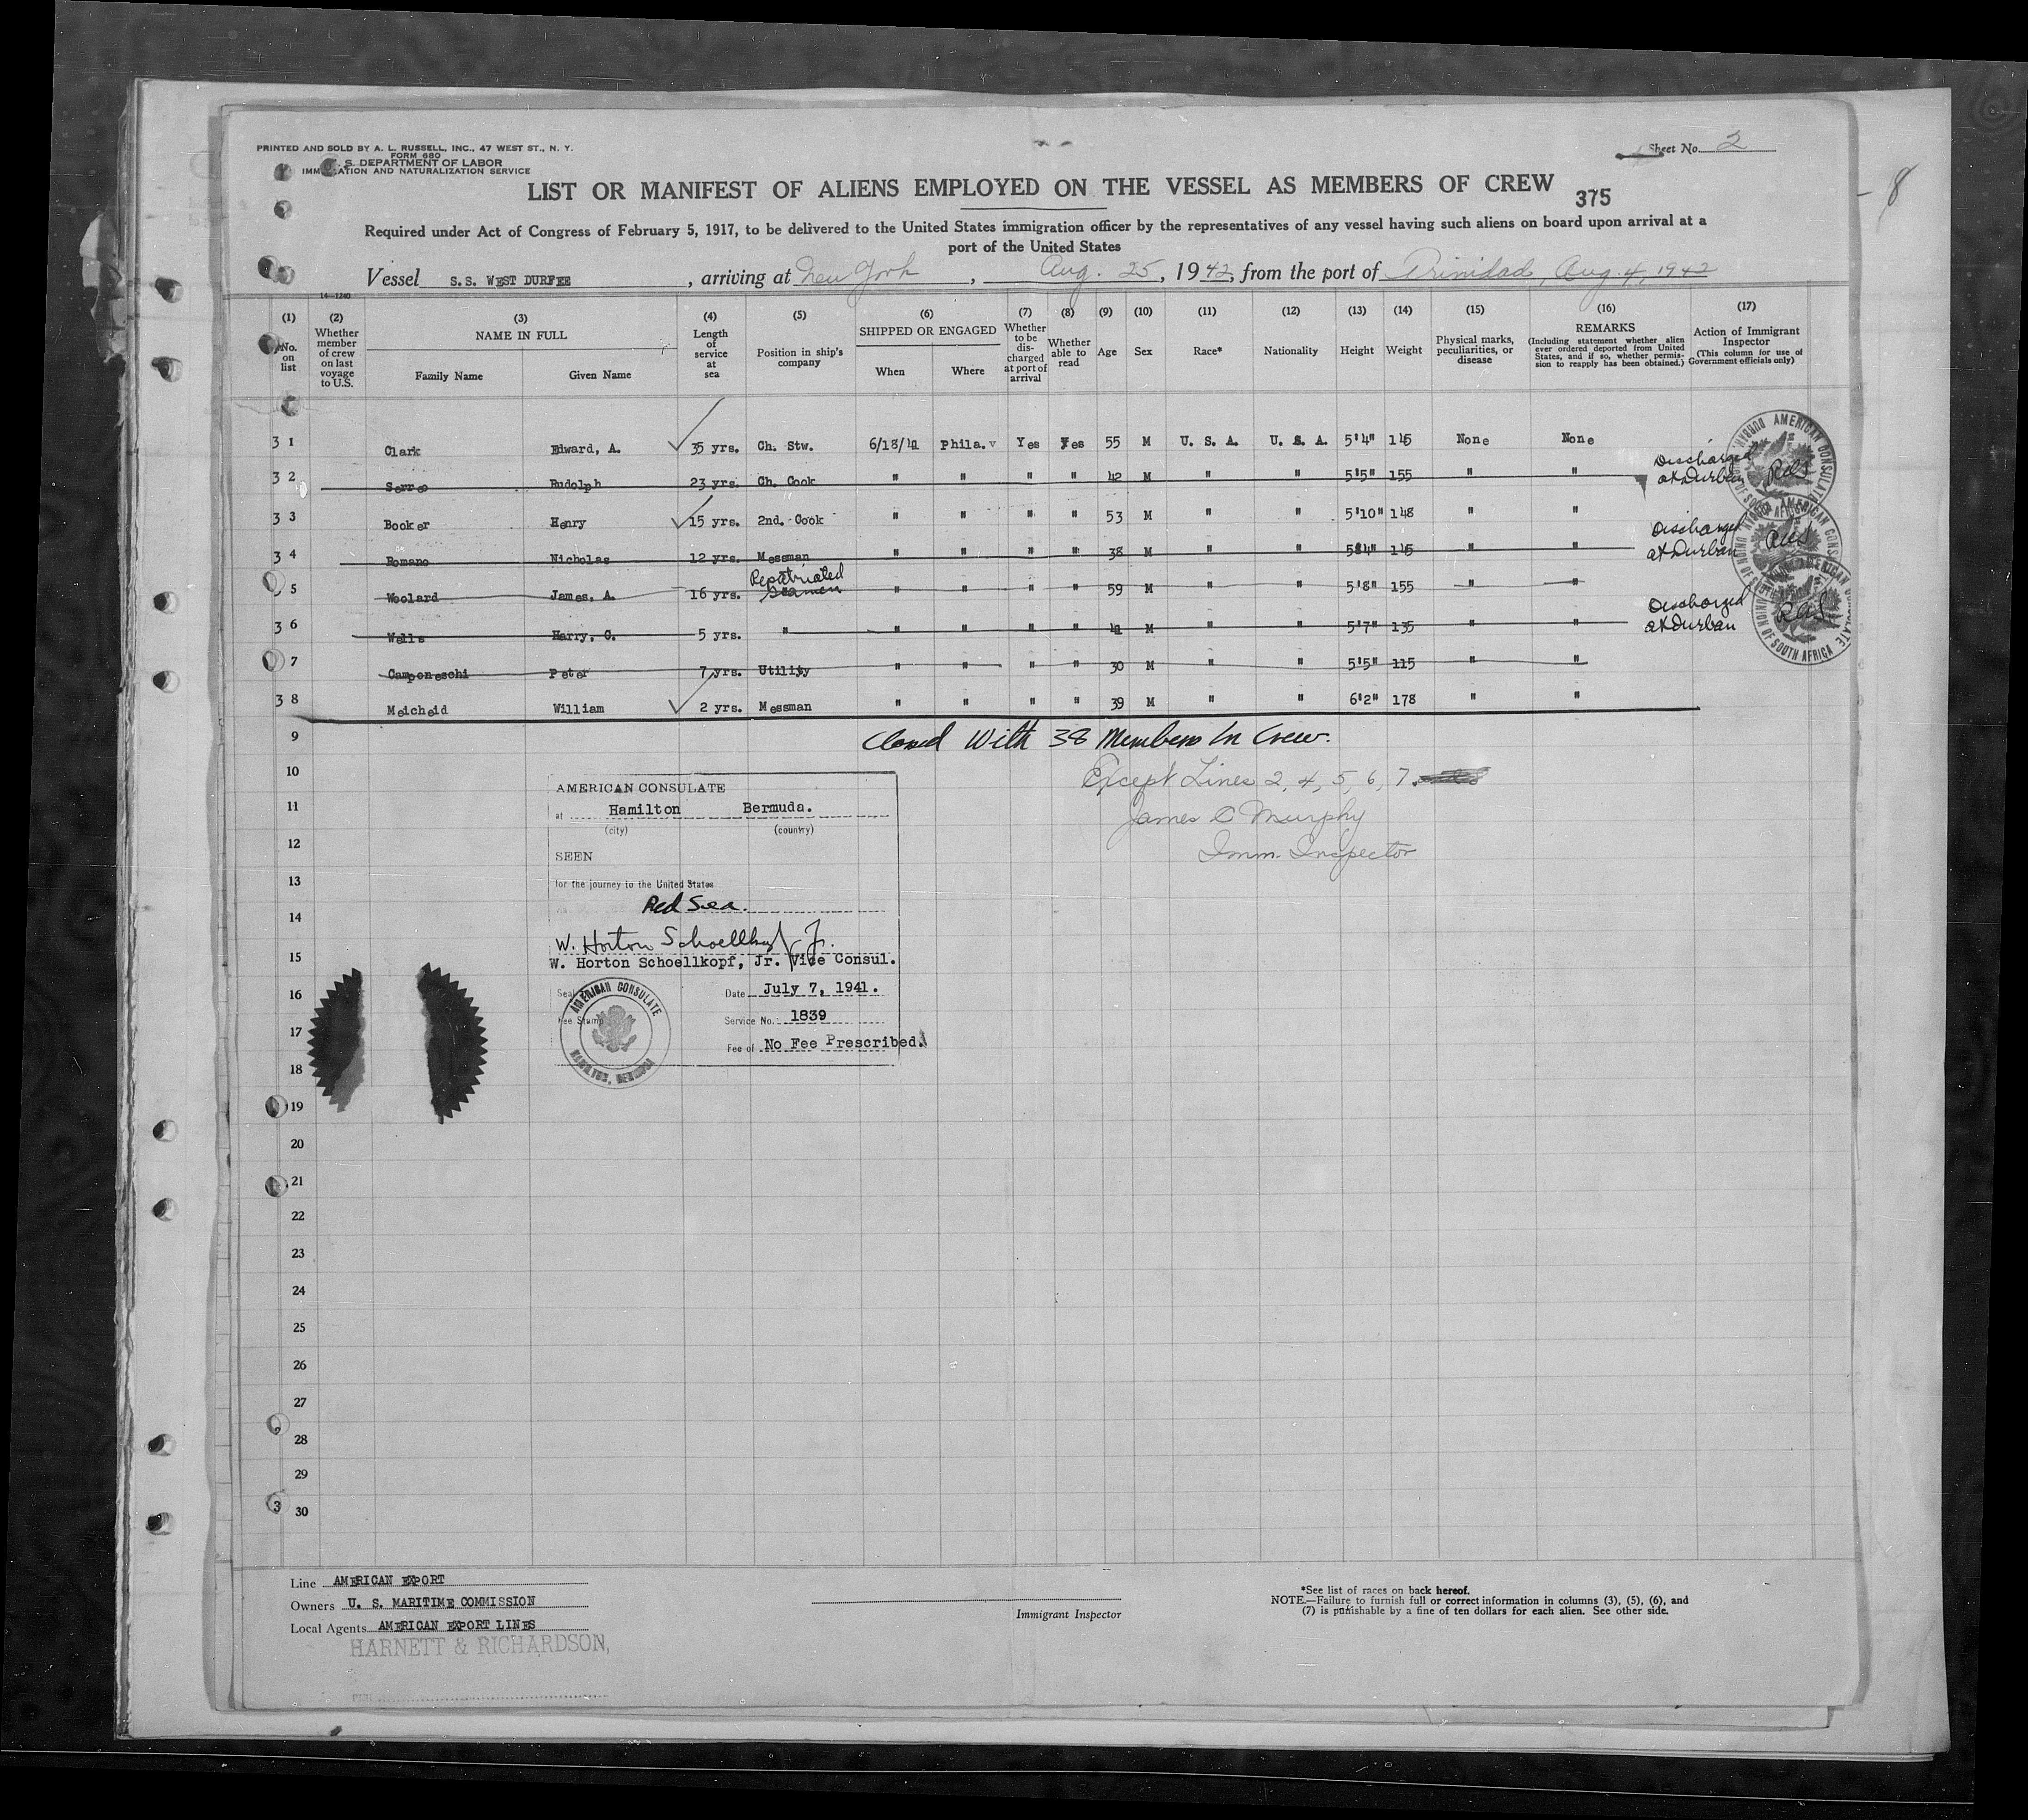 PRINTED AND SOLD BY A. L. RUSSELL, INC., 47 WEST ST., N. Y.
FORM 680
S. DEPARTMENT OF LABOR
IMM ATION AND NATURALIZATION SERVICE
Sheet No. 2
LIST OR MANIFEST OF ALIENS EMPLOYED ON THE VESSEL AS MEMBERS OF CREW
375
8
Required under Act of Congress of February 5, 1917, to be delivered to the United States immigration officer by the representatives of any vessel having such aliens on board upon arrival at a
port of the United States
Vessel S.S. WEST DURFEE, arriving at New York, Aug. 25, 1942, from the port of Trinidad, Aug. 4, 1942
14-1240
(1) No. on list
(2) Whether member of crew on last voyage to U.S.
(3) NAME IN FULL Family Name Given Name
(4) Length of service at sea
(5) Position in ship's company
(6) SHIPPED OR ENGAGED When Where
(7) Whether to be discharged at port of arrival
(8) Whether able to read
(9) Age
(10) Sex
(11) Race*
(12) Nationality
(13) Height
(14) Weight
(15) Physical marks, peculiarities, or disease
(16) REMARKS (Including statement whether alien ever ordered deported from United States, and if so, whether permission to reapply has been obtained.)
(17) Action of Immigrant Inspector (This column for use of Government officials only)
3 1 Clark Edward, A. 35 yrs. Ch. Stw. 6/18/41 Phila. Yes Yes 55 M U. S. A. U. S. A. 5'4" 145 None None
3 2 Serreo Rudolph 23 yrs. Ch. Cook " " " " 42 M " " 5'5" 155 " " Discharged at Durban
3 3 Booker Henry 15 yrs. 2nd. Cook " " " " 53 M " " 5'10" 148 " "
3 4 Romano Nicholas 12 yrs. Messman " " " " 38 M " " 5'4" 145 " " Discharged at Durban
5 Woolard James, A. 16 yrs. Repatriated Seamen " " " " 59 M " " 5'8" 155 " "
3 6 Wells Harry, C. 5 yrs. " " " " " 41 M " " 5'7" 135 " " Discharged at Durban
7 Camponeschi Peter 7 yrs. Utility " " " " 30 M " " 5'5" 115 " "
3 8 Meicheid William 2 yrs. Messman " " " " 39 M " " 6'2" 178 " "
AMERICAN CONSULATE DURBAN UNION OF SOUTH AFRICA
9 Closed With 38 Members In Crew.
10 Except Lines 2, 4, 5, 6, 7.
11 James C Murphy
12 Imm. Inspector
AMERICAN CONSULATE
at Hamilton Bermuda.
(city) (country)
SEEN
for the journey to the United States
Red Sea.
W. Horton Schoellkopf Jr.
W. Horton Schoellkopf, Jr. Vice Consul.
Seal
Date July 7, 1941.
Fee Stamp
Service No. 1839
Fee of No Fee Prescribed.
AMERICAN CONSULATE
HAMILTON, BERMUDA
13
14
15
16
17
18
19
20
21
22
23
24
25
26
27
28
29
3 30
Line AMERICAN EXPORT
Owners U. S. MARITIME COMMISSION
Local Agents AMERICAN EXPORT LINES
HARNETT & RICHARDSON,
PER
Immigrant Inspector
*See list of races on back hereof.
NOTE.—Failure to furnish full or correct information in columns (3), (5), (6), and
(7) is punishable by a fine of ten dollars for each alien. See other side.